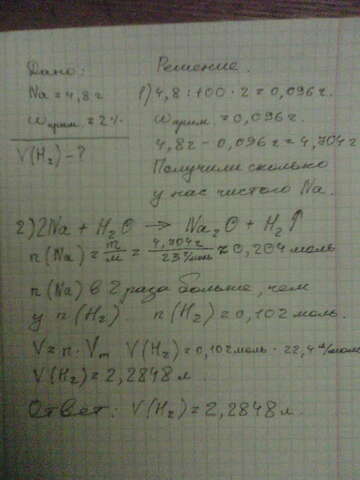 Дано:
Na = 4,8 г
ωприм. = 2%
V(H₂) - ?
Решение.
1) 4,8 : 100 · 2 = 0,096 г.
ωприм. = 0,096 г.
4,8 г - 0,096 г = 4,704 г
Получили сколько
у нас чистого Na.
2) 2Na + H₂O → Na₂O + H₂↑
n(Na) = m/M = 4,704 г / 23 г/моль ≈ 0,204 моль
n(Na) в 2 раза больше, чем
у n(H₂) n(H₂) = 0,102 моль.
V = n · Vm V(H₂) = 0,102 моль · 22,4 л/моль
V(H₂) = 2,2848 л.
Ответ: V(H₂) = 2,2848 л.